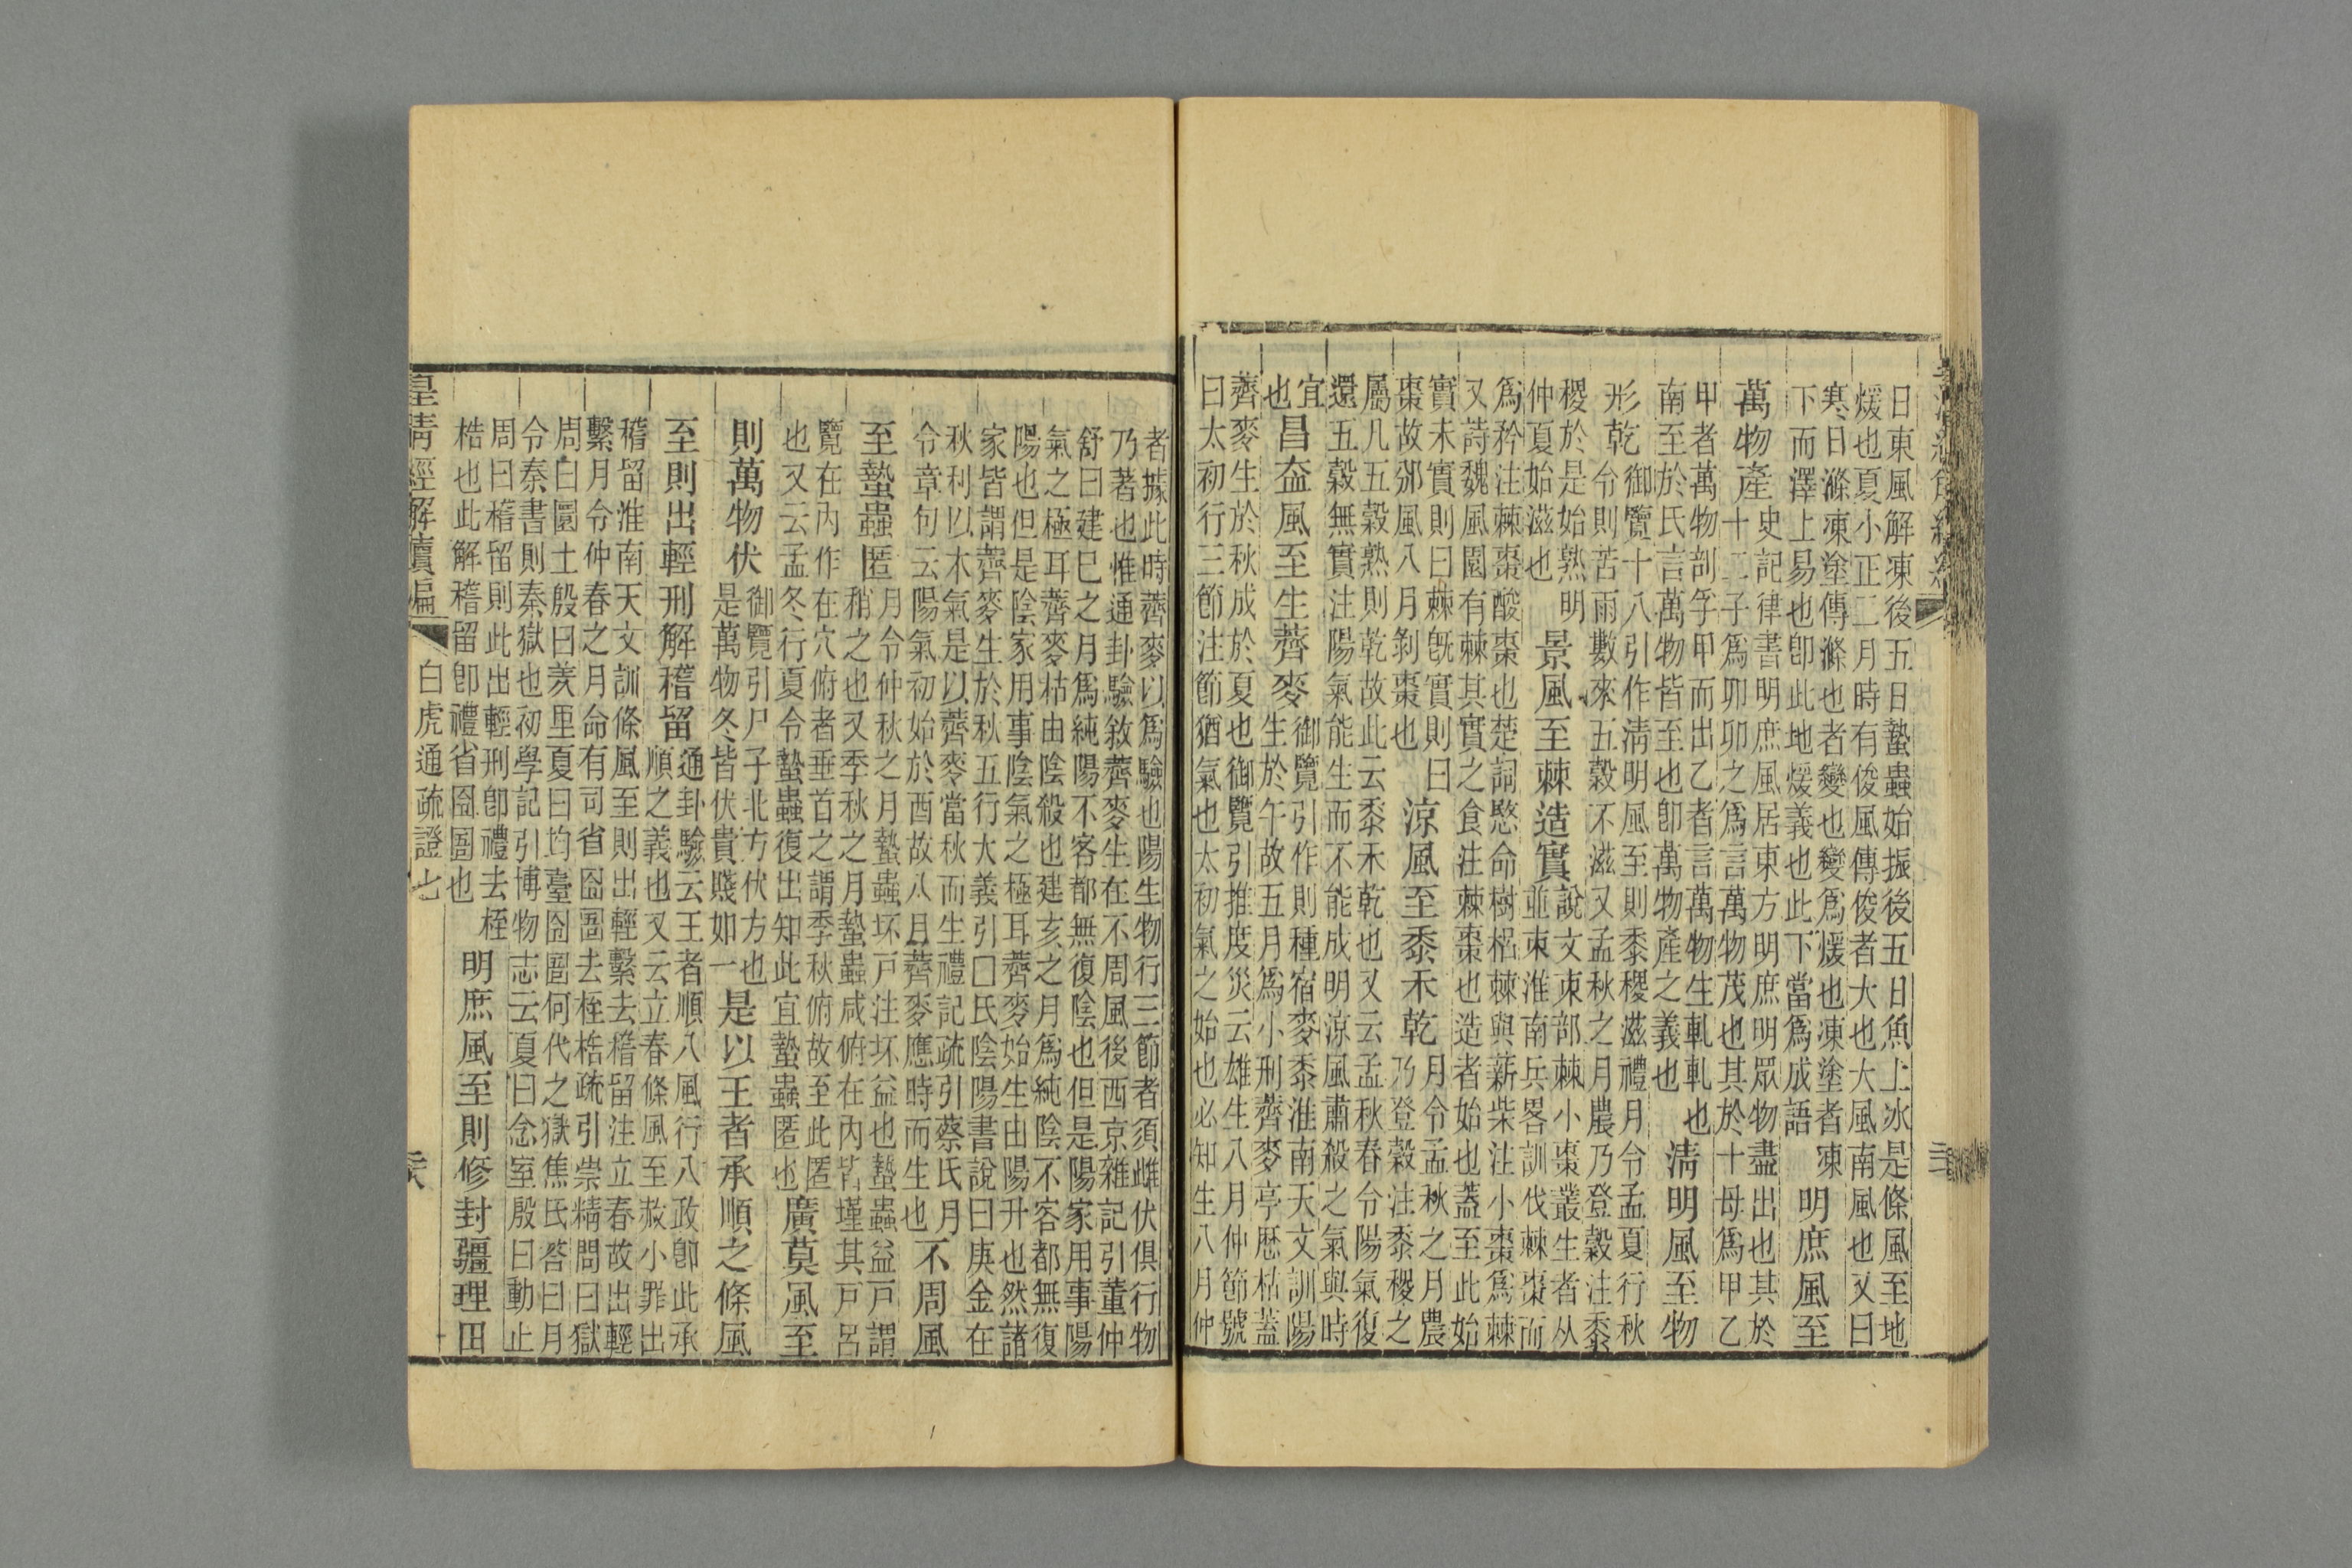 日東風解凍後五日蟄蟲始振後五日魚上冰是條風至地
煖也夏小正二月時有俊風傳俊者大也大風南風也又曰
寒日滌凍塗傳滌也者變也變爲煖也凍塗者凍
下而澤上易也卽此地煖義也此下當爲成語
明庶風至
萬物產
史記律書明庶風居東方明庶明眾物盡出也其於
十二子爲卯卯之爲言萬物茂也其於十母爲甲乙
甲者萬物剖孚甲而出乙者言萬物生軋軋也
南至於氏言萬物皆至也卽萬物產之義也
清明風至物
形乾
御覽十八引作淸明風至則黍稷滋禮月令孟夏行秋
令則苦雨數來五穀不滋又孟秋之月農乃登穀注黍
稷於是始熟明
仲夏始滋也
景風至棘造實
說文朿部棘小棗叢生者从
並朿淮南兵畧訓伐棘棗而
爲矜注棘棗酸棗也楚詞愍命樹梠棘與薪柴注小棗爲棘
又詩魏風園有棘其實之食注棘棗也造者始也蓋至此始
實未實則曰棘旣實則曰
棗故邠風八月剝棗也
涼風至黍禾乾
月令孟秋之月農
乃登穀注黍稷之
屬凡五穀熟則乾故此云黍禾乾也又云孟秋春令陽氣復
還五穀無實注陽氣能生而不能成明涼風肅殺之氣與時
宜
也
昌盍風至生薺麥
御覽引作則種宿麥黍淮南天文訓陽
生於午故五月爲小刑薺麥亭歷枯蓋
薺麥生於秋成於夏也御覽引推度災云雄生八月仲節號
曰太初行三節注節猶氣也太初氣之始也必知生八月仲
者據此時薺麥以爲驗也陽生物行三節者須雌伏俱行物
乃著也惟通卦驗敘薺麥生在不周風後西京雜記引董仲
舒曰建巳之月爲純陽不容都無復陰也但是陽家用事陽
氣之極耳薺麥枯由陰殺也建亥之月爲純陰不容都無復
陽也但是陰家用事陰氣之極耳薺麥始生由陽升也然諸
家皆謂薺麥生於秋五行大義引□氏陰陽書說曰庚金在
秋利以木氣是以薺麥當秋而生禮記疏引蔡氏月
令章句云陽氣初始於酉故八月薺麥應時而生也
不周風
至蟄蟲匿
月令仲秋之月蟄蟲坏戸注坏益也蟄蟲益戸謂
稍之也又季秋之月蟄蟲咸俯在內皆墐其戸呂
覽在內作在穴俯者垂首之謂季秋俯故至此匿
也又云孟冬行夏令蟄蟲復出知此宜蟄蟲匿也
廣莫風至
則萬物伏
御覽引尸子北方伏方也
是萬物冬皆伏貴賤如一
是以王者承順之條風
至則出輕刑解稽留
通卦驗云王者順八風行八政卽此承
順之義也又云立春條風至赦小罪出
稽留淮南天文訓條風至則出輕繫去稽留注立春故出輕
繫月令仲春之月命有司省囹圄去桎梏疏引崇精問曰獄
周曰圜土殷曰羑里夏曰均臺囹圄何代之獄焦氏答曰月
令秦書則秦獄也初學記引博物志云夏曰念室殷曰動止
周曰稽留則此出輕刑卽禮去桎
梏也此解稽留卽禮省囹圄也
明庶風至則修封疆理田
皇清經解續編
白虎通疏證七